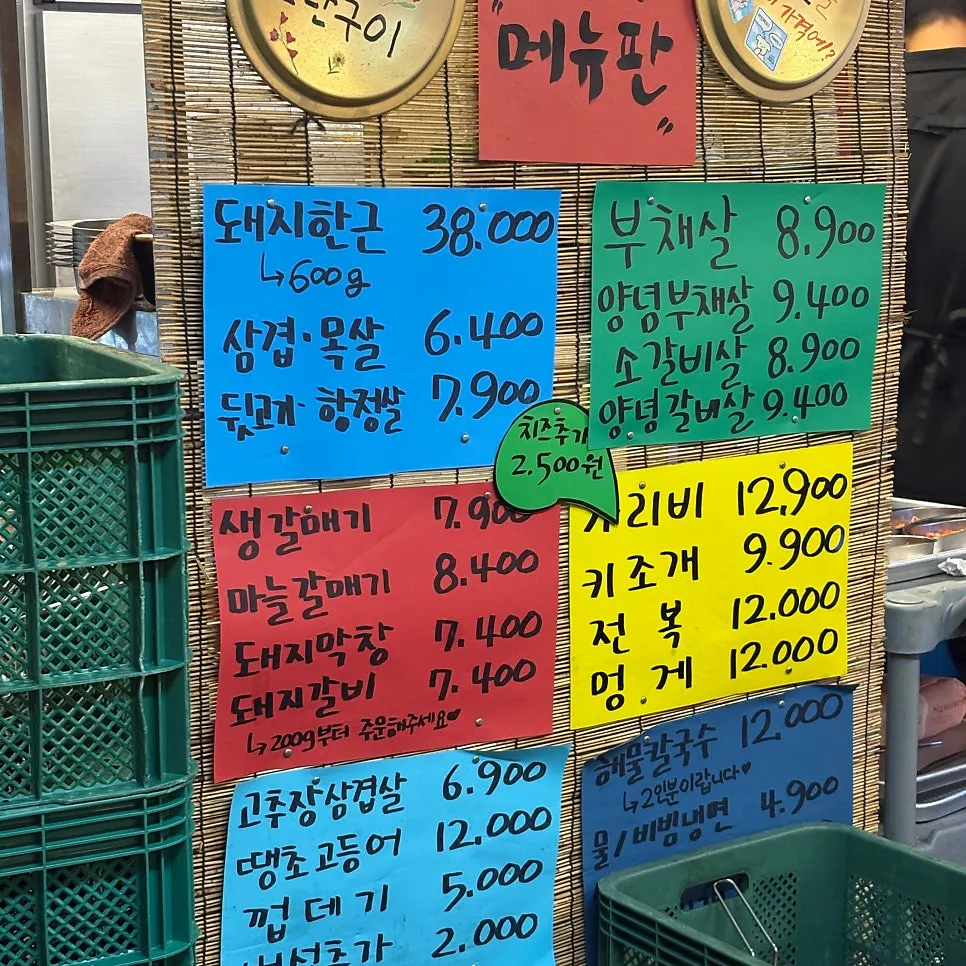 구이
가격에?
메뉴판
돼지한근 38.000
↳600g
삼겹·목살 6.400
뒷고기·항정살 7.900
부채살 8.900
양념부채살 9.400
소갈비살 8.900
양념갈비살 9.400
치즈추가
2.500원
생갈매기 7.900
마늘갈매기 8.400
돼지막창 7.400
돼지갈비 7.400
↳200g부터 주문해주세요♥
가리비 12,900
키조개 9.900
전복 12.000
멍게 12.000
고추장삼겹살 6.900
땡초고등어 12.000
껍데기 5.000
버섯추가 2.000
해물칼국수 12,000
↳2인분이랍니다♥
물/비빔냉면 4.900